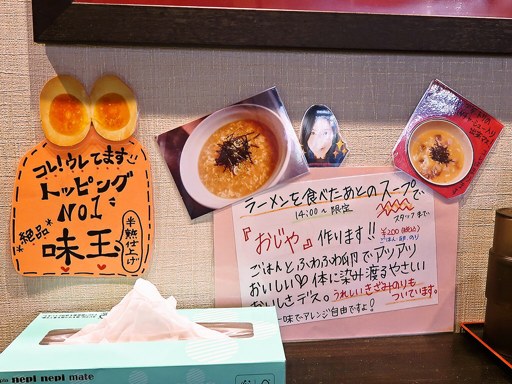 コレ!ウレてます!!
トッピング
NO.1
*絶品*
味玉
半熟仕上げ
ラーメンを食べたあとのスープで
14:00〜限定
スタッフまで
『おじや』作ります!!
¥200(税込)
ごはん・卵・のり
ごはんとふわふわ卵でアツアツ
おいしい♡体に染み渡るやさしい
おいしさデス。うれしいきざみのりも
ついています。
一味でアレンジ自由ですよ!
nepi nepi mate